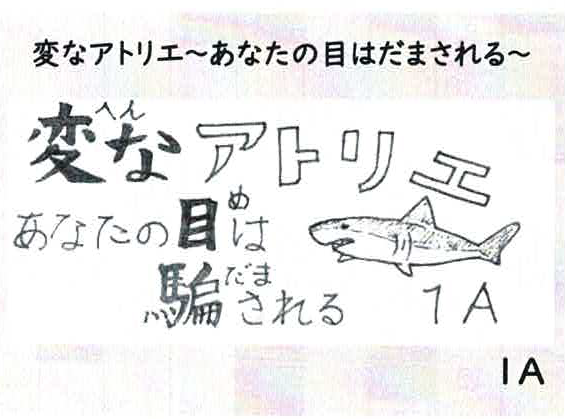 変なアトリエ～あなたの目はだまされる～
へん
変なアトリエ
め
あなたの目は
だま
騙される
1A
1A